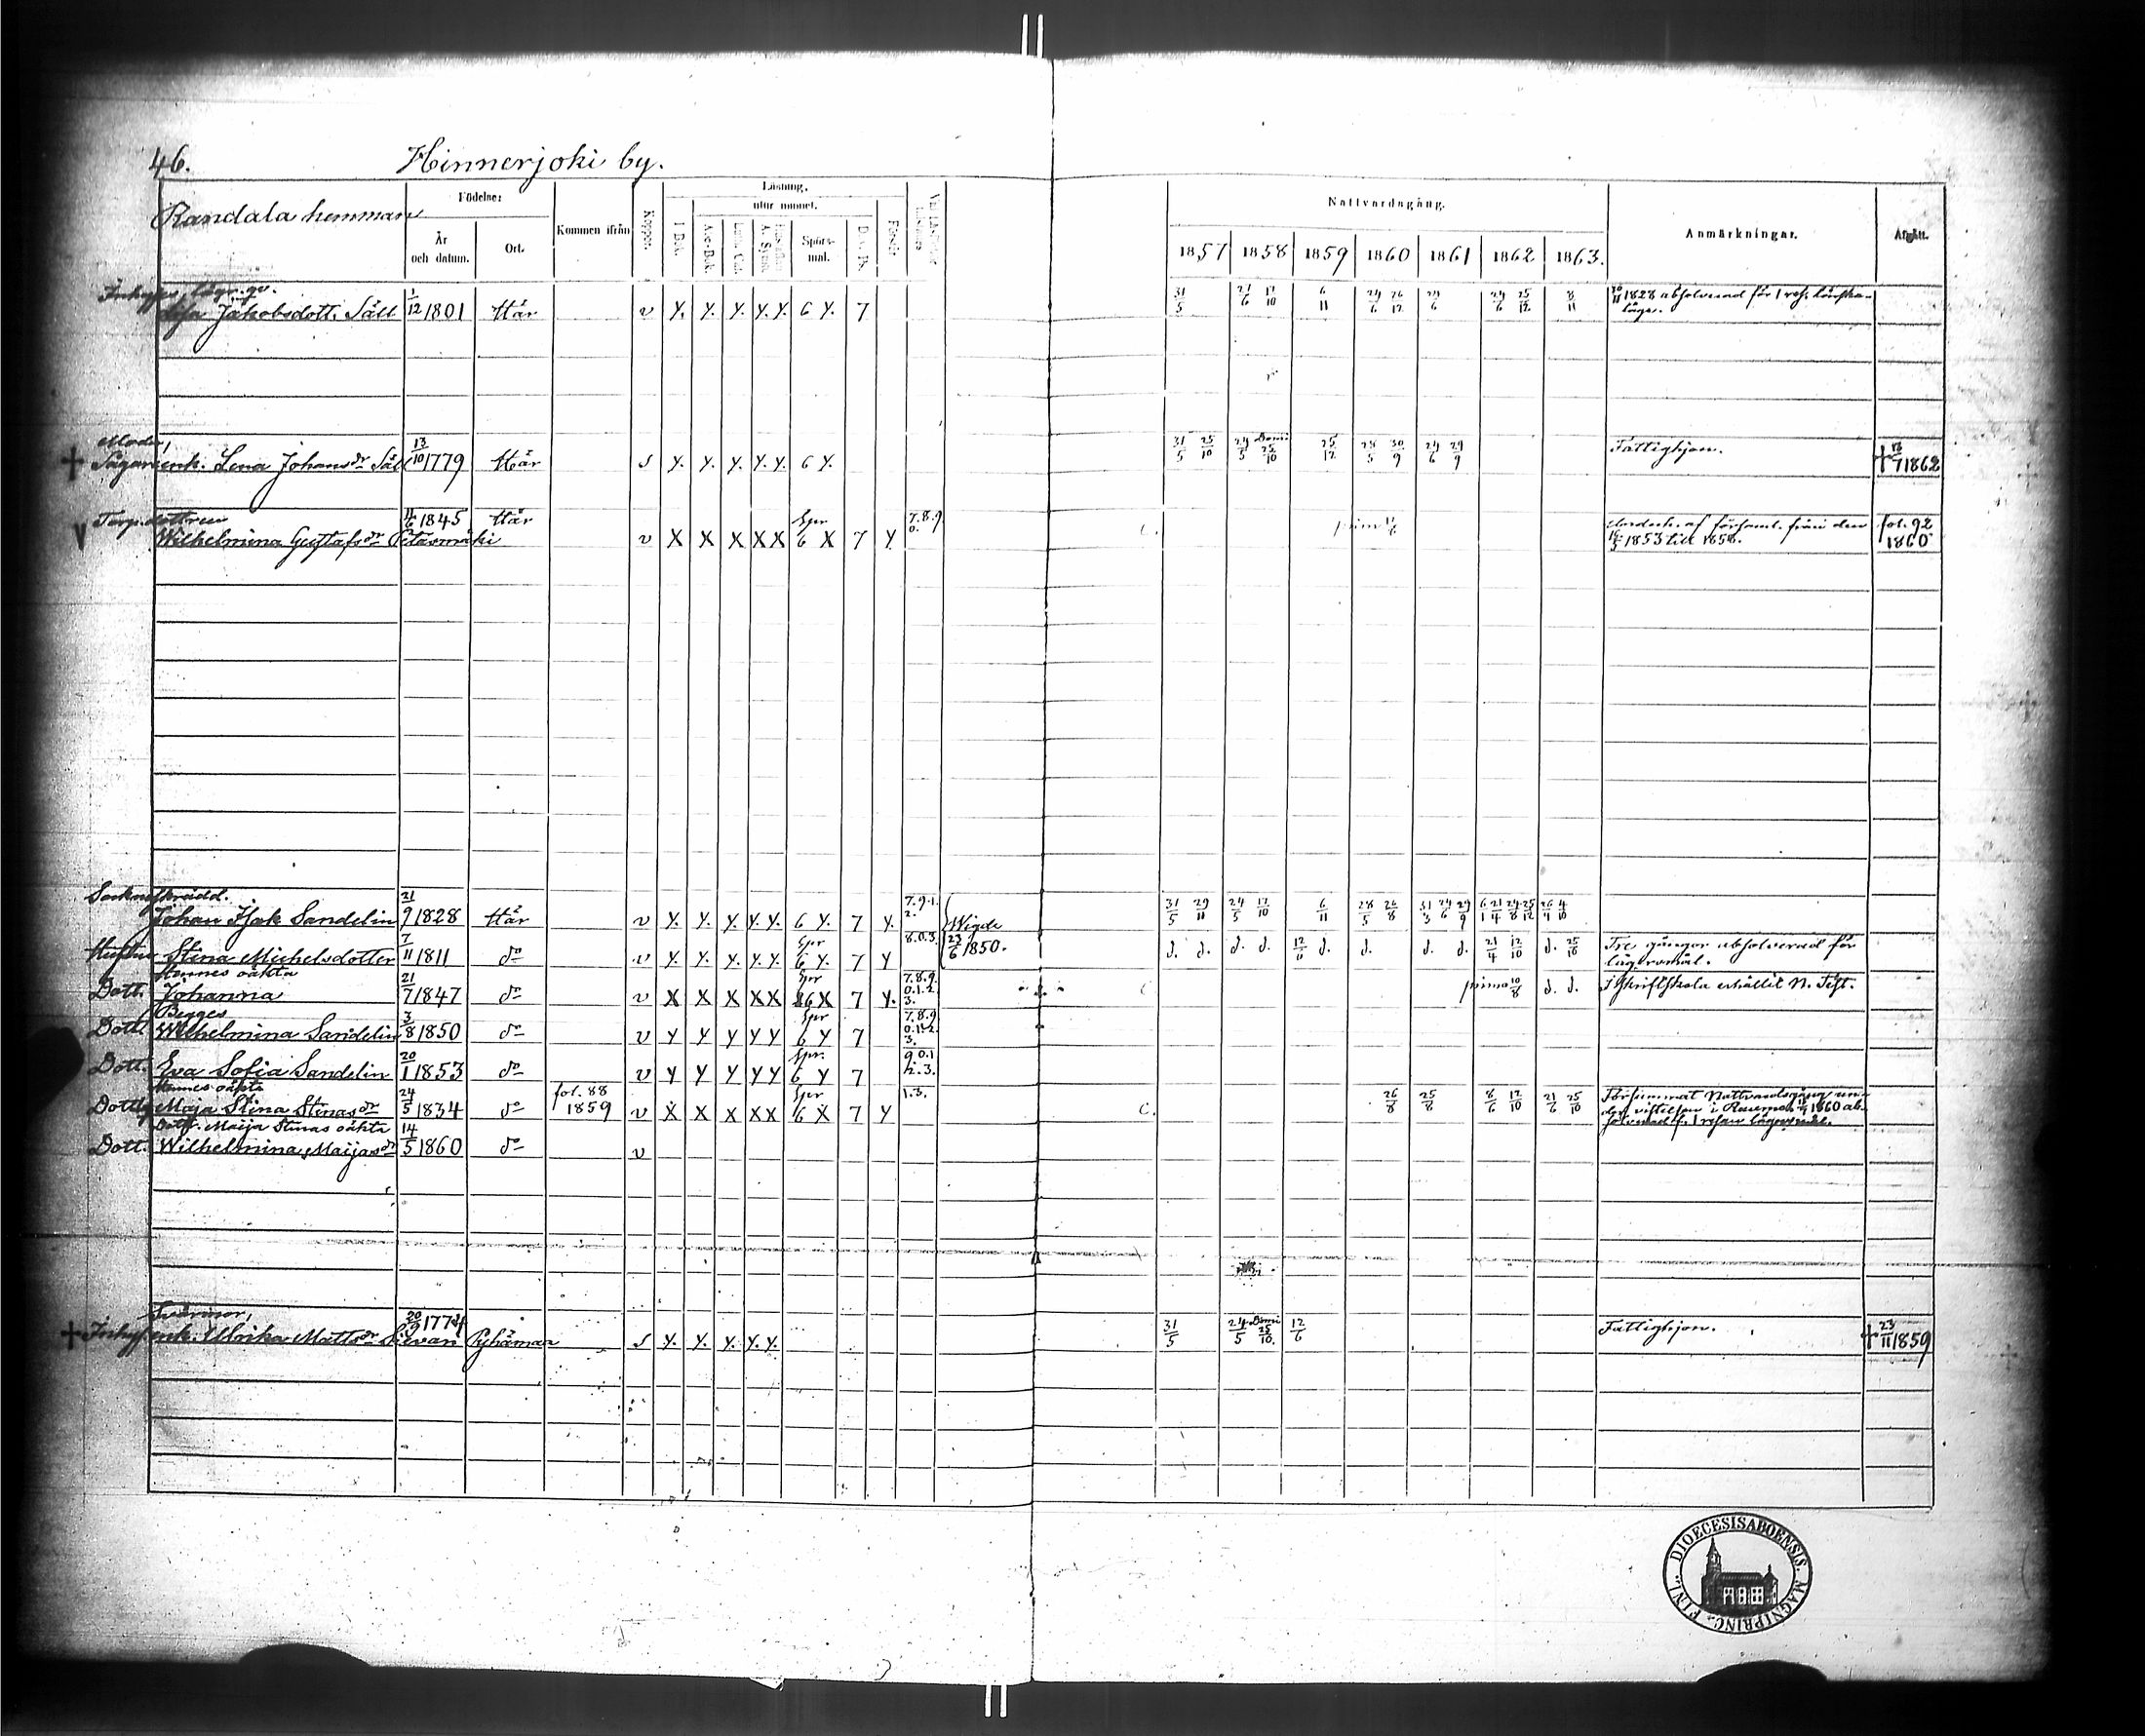 46.
Hinnerjoki by.
Randala hemman
Födelse:
År och datum.
Ort.
Kommen ifrån
Koppor.
Läsning,
utur minnet.
I Bok.
A-b-c-Bok.
Spörs-mål.
Nattvardsgång.
1857 1858 1859 1860 1861 1862 1863.
Anmärkningar.
Afgått.
Lisa Jakobsdott. Säll 1/12 1801 Här v y. y. y. y. y. 6 y. 7 31/5 6/11 8/11 1828 absolverad för 1 resa lönska-
läge.
Moder,
+ Sågareenk. Lena Johansdr Säll 13/10 1779 Här s y. y. y. y. y. 6 y. 31/5 25/10 24/5 25/10 25/12 30/9 24/6 29/9 Fattighjon. + 1862
Torp.dottren
Wilhelmina Gustafsdr Petäsmäki 1845 Här v X X X X X Spr 6 X 7 y 7.8.9. 0. C. af församl. från den fol. 92
1853 till 1858. 1860
Socknskrädd.
Johan Isak Sandelin 21/9 1828 Här v y. y. y. y. y. 6 y. 7 y. 7.9.1. 2. Wigde 31/5 29/11 24/5 6/11 28/5 26/8 31/3 24/6 29/9
Hustru Stina Michelsdotter 7/11 1811 do v y. y. y. y. y. Spr 6 y. 7 y 8.0.3. 23/6 1850. d. d. d. d. d. d. d. d. 21/4 12/10 d. 25/10 Tre gånger absolverad för
lägersmål.
Hennes oäkta
Dott. Johanna 21/7 1847 do v X X X X X Spr 6 X 7 y. 7.8.9. 0.1.2. 3. C primo 10/8 d. d. I Skriftskola erhållit N. Test.
Begges
Dott. Wilhelmina Sandelin 3/8 1850 do v y y y y y Spr 6 y 7 7.8.9 0.1.2. 3.
Dott. Eva Sofia Sandelin 20/1 1853 do v y y y y y Spr. 6 y 7 9.0.1 2.3.
Hennes oäkta
Maja Stina Stinasdr 24/5 1834 do fol. 88 1859 v X X X X X Spr 6 X 7 y 1.3. C. 26/8 25/8 8/6 12/10 21/6 25/10 Försummat Nattvardsgång un-
der vistelsen i 1860 ab-
solverad f. 1 resan lägersmål.
Dott. Maija Stinas oäkta
Dott. Wilhelmina Maijasdr 14/5 1860 do v
Svärmor,
+ Inhyssenk. Ulrika Mattsdr 20/9 1774 Pyhämaa s y. y. y. y. y. 31/5 24/5 25/10. 12/6 Fattighjon. + 23/11 1859
DIOECESIS ABOENSIS. MAGNI PRINC. FINL.